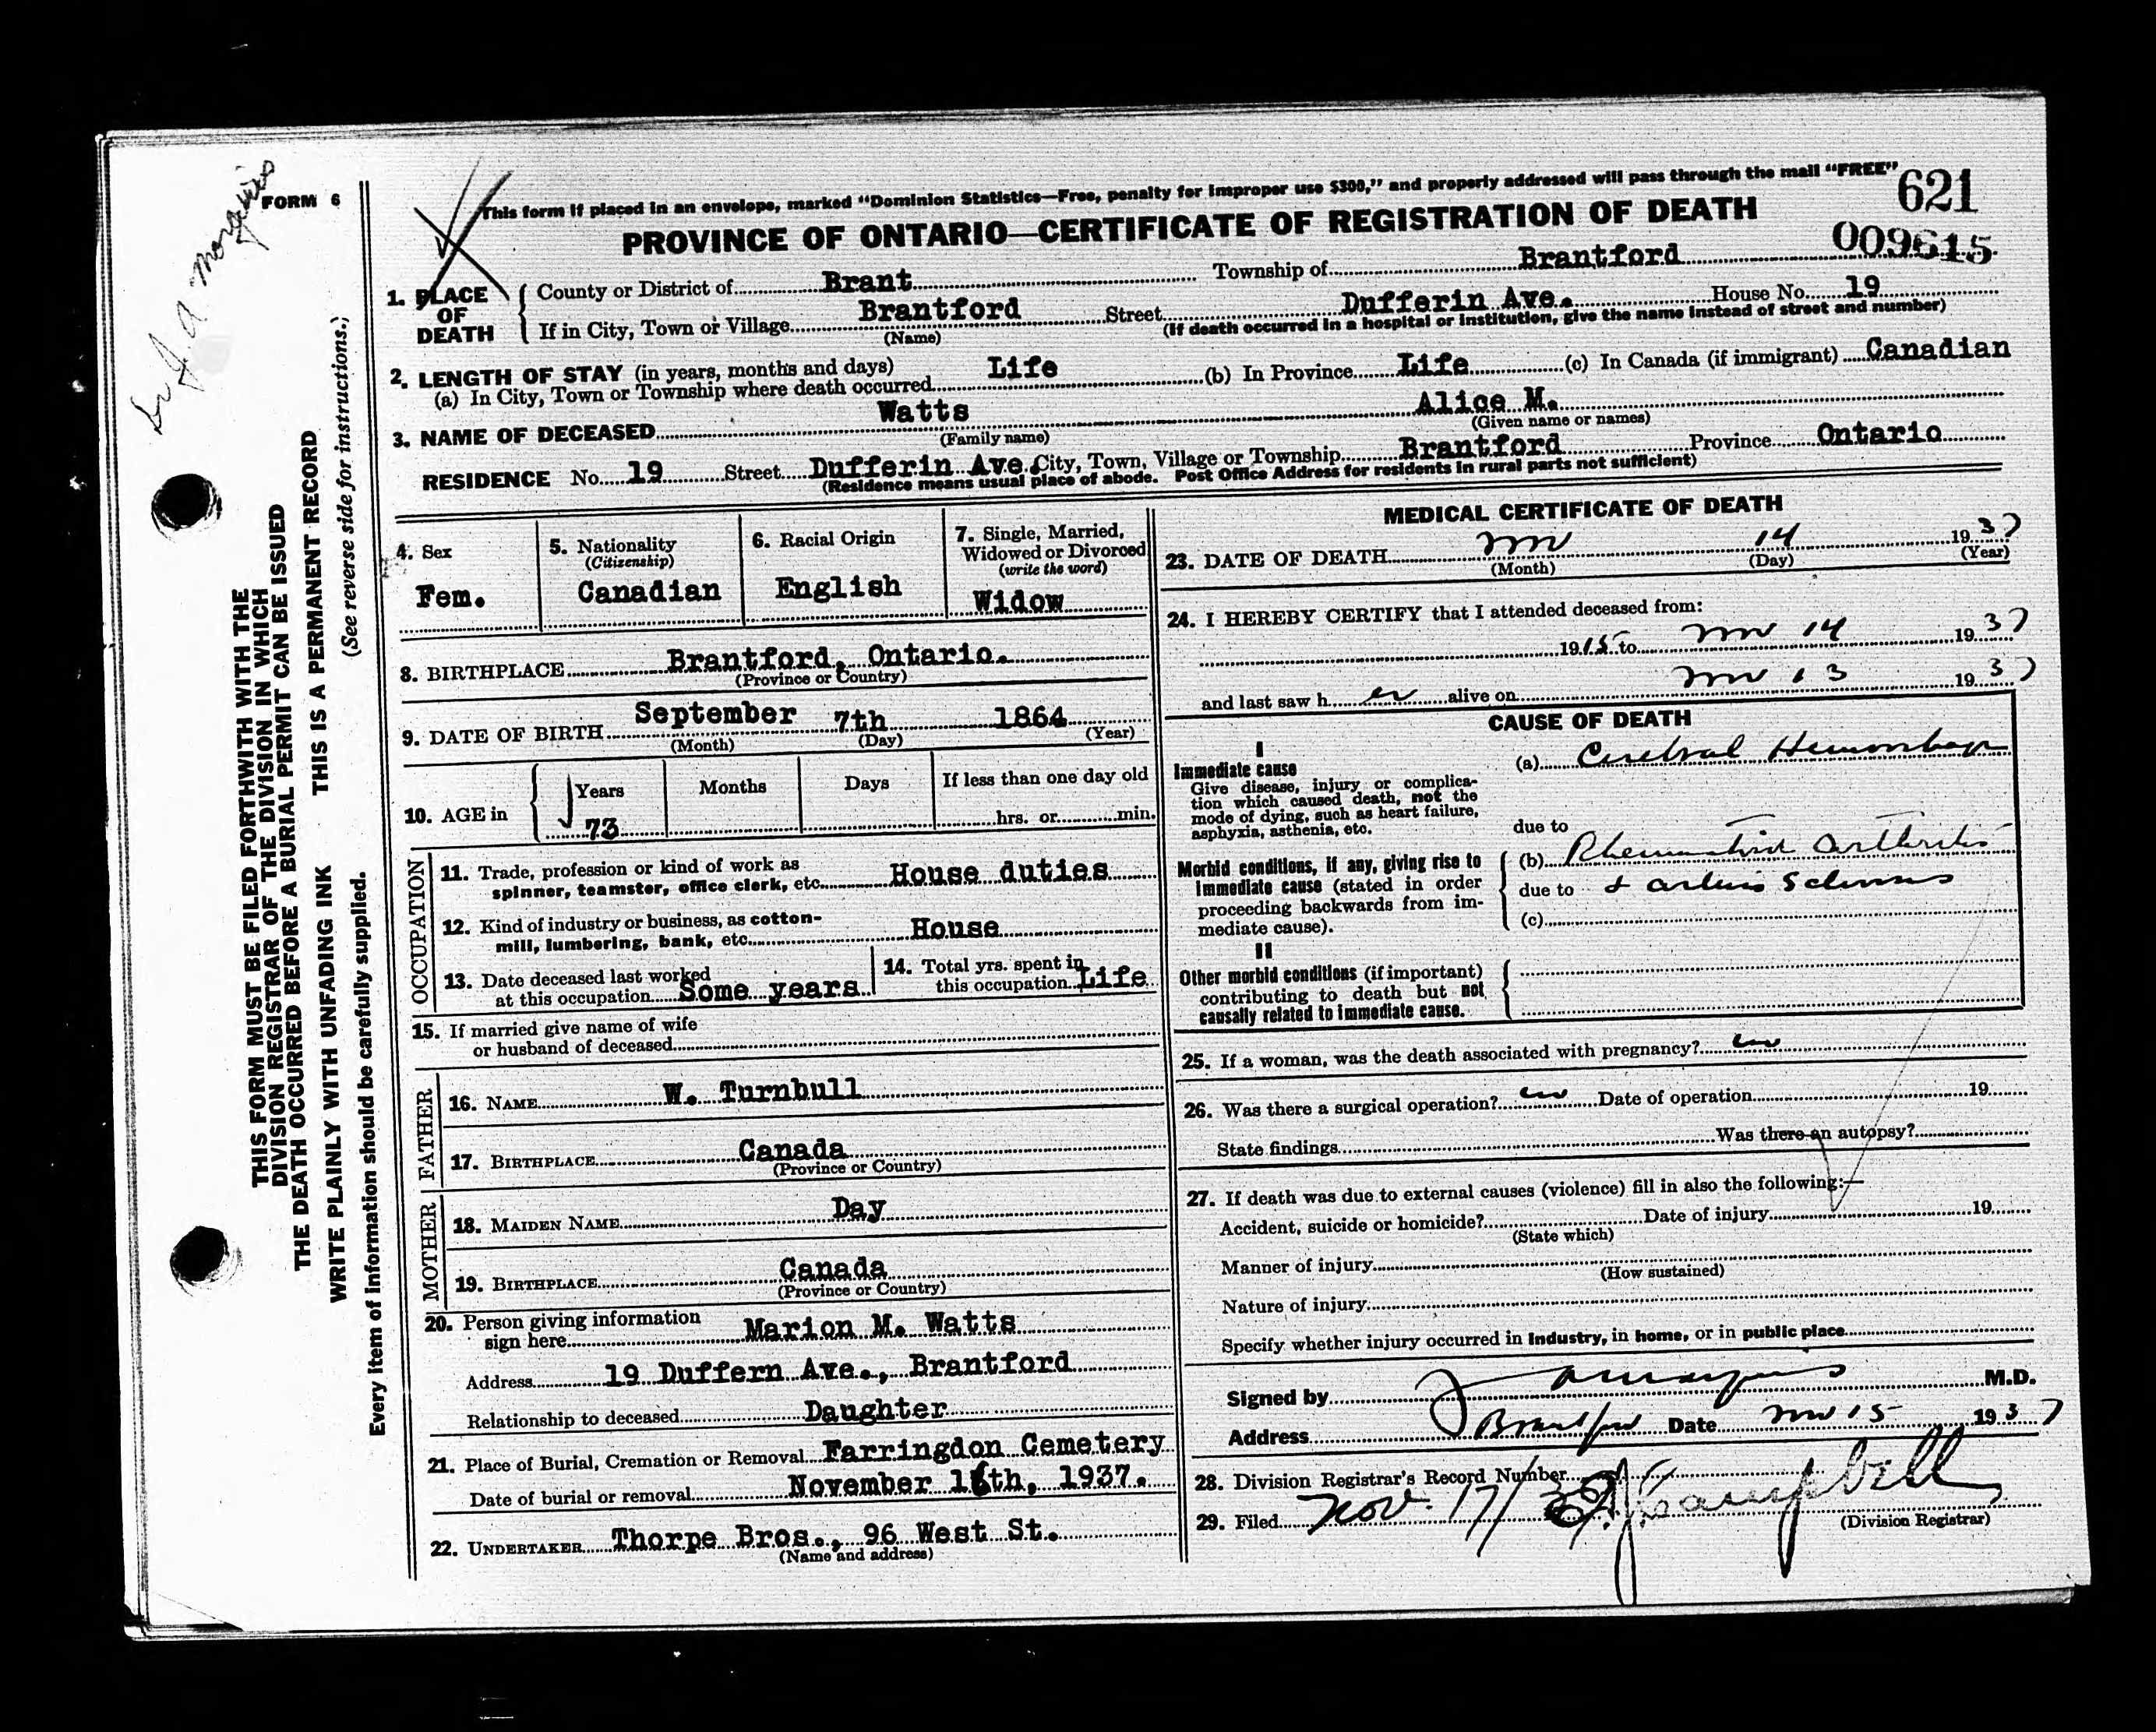 Dr J. A. Morgan
FORM 6
THIS FORM MUST BE FILED FORTHWITH WITH THE
DIVISION REGISTRAR OF THE DIVISION IN WHICH
THE DEATH OCCURRED BEFORE A BURIAL PERMIT CAN BE ISSUED
WRITE PLAINLY WITH UNFADING INK THIS IS A PERMANENT RECORD
Every item of information should be carefully supplied. (See reverse side for instructions.)
This form if placed in an envelope, marked "Dominion Statistics—Free, penalty for improper use $300," and properly addressed will pass through the mail "FREE"
621
PROVINCE OF ONTARIO—CERTIFICATE OF REGISTRATION OF DEATH
009615
1. PLACE OF DEATH
County or District of Brant Township of Brantford
If in City, Town or Village Brantford Street Dufferin Ave. House No. 19
(Name) (If death occurred in a hospital or institution, give the name instead of street and number)
2. LENGTH OF STAY (in years, months and days)
(a) In City, Town or Township where death occurred Life (b) In Province Life (c) In Canada (if immigrant) Canadian
3. NAME OF DECEASED Watts Alice M.
(Family name) (Given name or names)
RESIDENCE No. 19 Street Dufferin Ave. City, Town, Village or Township Brantford Province Ontario
(Residence means usual place of abode. Post Office Address for residents in rural parts not sufficient)
4. Sex
Fem.
5. Nationality
(Citizenship)
Canadian
6. Racial Origin
English
7. Single, Married,
Widowed or Divorced
(write the word)
Widow
8. BIRTHPLACE Brantford, Ontario.
(Province or Country)
9. DATE OF BIRTH September 7th 1864
(Month) (Day) (Year)
10. AGE in
Years Months Days If less than one day old
73 hrs. or min.
OCCUPATION
11. Trade, profession or kind of work as
spinner, teamster, office clerk, etc. House duties
12. Kind of industry or business, as cotton-
mill, lumbering, bank, etc. House
13. Date deceased last worked
at this occupation Some years
14. Total yrs. spent in
this occupation Life
15. If married give name of wife
or husband of deceased
FATHER
16. NAME W. Turnbull
17. BIRTHPLACE Canada
(Province or Country)
MOTHER
18. MAIDEN NAME Day
19. BIRTHPLACE Canada
(Province or Country)
20. Person giving information
sign here Marion M. Watts
Address 19 Duffern Ave., Brantford
Relationship to deceased Daughter
21. Place of Burial, Cremation or Removal Farringdon Cemetery
Date of burial or removal November 16th, 1937.
22. UNDERTAKER Thorpe Bros., 96 West St.
(Name and address)
MEDICAL CERTIFICATE OF DEATH
23. DATE OF DEATH Nov 14 1937
(Month) (Day) (Year)
24. I HEREBY CERTIFY that I attended deceased from:
1915 to Nov 14 1937
and last saw her alive on Nov 13 1937
CAUSE OF DEATH
I
Immediate cause
Give disease, injury or complica-
tion which caused death, not the
mode of dying, such as heart failure,
asphyxia, asthenia, etc.
(a) Cerebral Hemorrhage
due to
Morbid conditions, if any, giving rise to
immediate cause (stated in order
proceeding backwards from im-
mediate cause).
(b) Rheumatoid Arthritis
due to & arterio Sclerosis
(c)
II
Other morbid conditions (if important)
contributing to death but not
causally related to immediate cause.
25. If a woman, was the death associated with pregnancy? no
26. Was there a surgical operation? no Date of operation 19
State findings Was there an autopsy?
27. If death was due to external causes (violence) fill in also the following:—
Accident, suicide or homicide? Date of injury 19
(State which)
Manner of injury
(How sustained)
Nature of injury
Specify whether injury occurred in industry, in home, or in public place
Signed by M.D.
Address Brantford Date Nov 15 1937
28. Division Registrar's Record Number
29. Filed Nov. 17/37 Campbell
(Division Registrar)